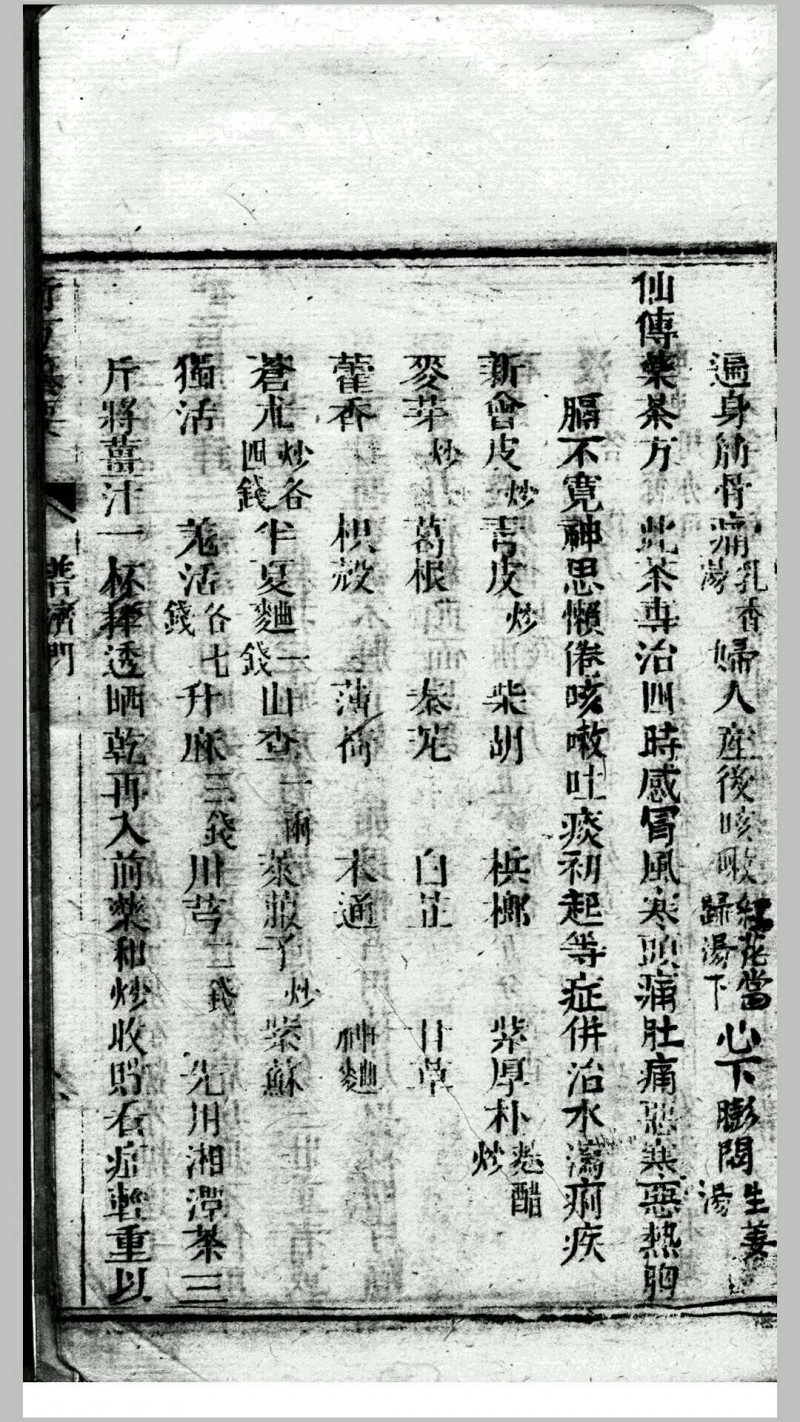 遍身筋骨痛乳香湯　婦人產後咳嗽紅花當歸湯下　心下膨悶生姜湯
仙傳藥茶方　此茶專治四時感冒風寒頭痛肚痛惡寒惡熱胸
膈不寬神思懶倦咳嗽吐痰初起等症併治水瀉痢疾
新會皮炒　青皮炒　柴胡　梹榔　紫厚朴醋炒
麥芽炒　葛根　秦艽　白芷　甘草
藿香　枳殼　薄荷　木通　神麯
蒼朮炒各四錢　半夏麯一錢　山查一兩　萊菔子炒　紫蘇
獨活　羌活各七錢　升麻三錢　川芎二錢　先用湘潭茶三
斤將薑汁一杯拌透晒乾再入前藥和炒收貯看症輕重以
普濟門